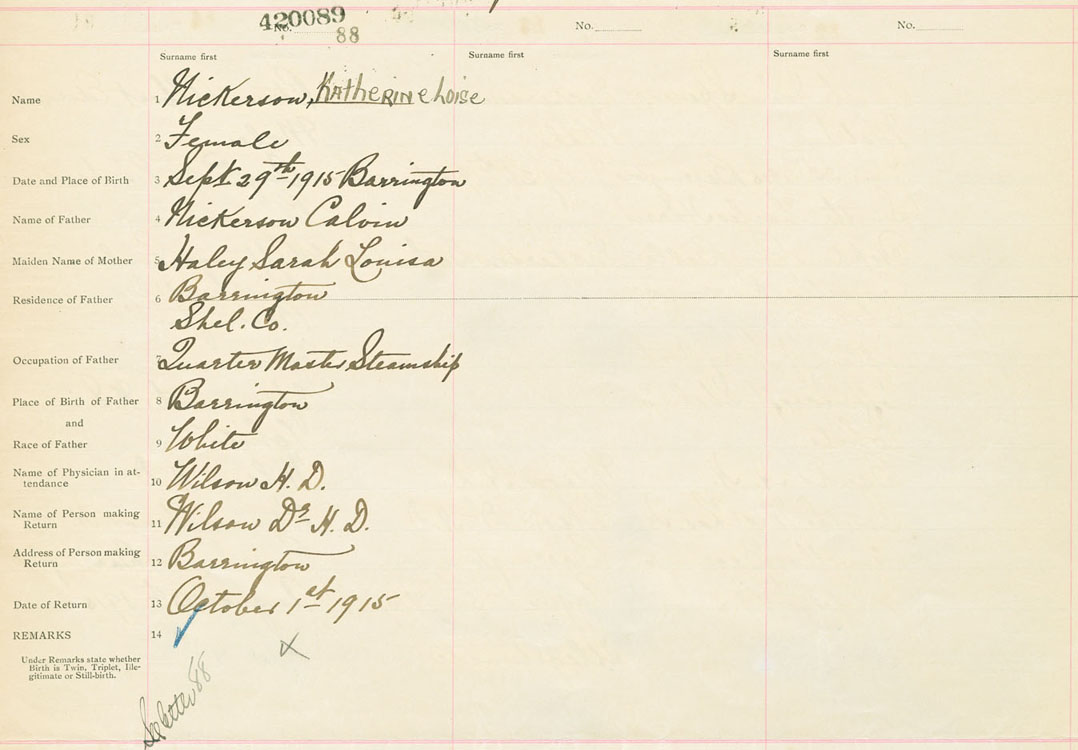 420089
No. 88
No.
No.
Surname first
Surname first
Surname first
Name 1 Nickerson, Katherine Loise
Sex 2 Female
Date and Place of Birth 3 Sept 29th 1915 Barrington
Name of Father 4 Nickerson Calvin
Maiden Name of Mother 5 Haley Sarah Louisa
Residence of Father 6 Barrington
Shel. Co.
Occupation of Father 7 Quarter Master Steamship
Place of Birth of Father 8 Barrington
and
Race of Father 9 White
Name of Physician in at-
tendance 10 Wilson H. D.
Name of Person making
Return 11 Wilson Dr H. D.
Address of Person making
Return 12 Barrington
Date of Return 13 October 1st 1915
REMARKS 14
Under Remarks state whether
Birth is Twin, Triplet, Ille-
gitimate or Still-birth.
X
See letter 88